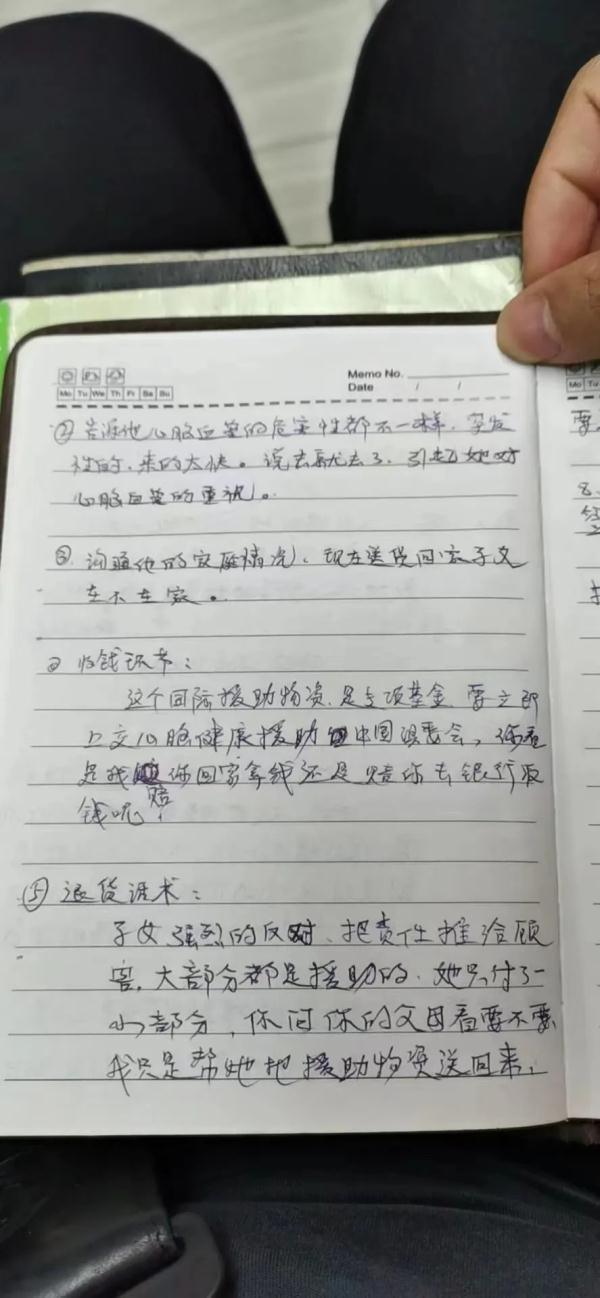 Memo No.
Date / /
Mo Tu We Th Fr Sa Su
Mo Tu
② 告诉他心脑血管的危害性都不一样，突发
性的，来的太快。说去就去了，引起她对
心脑血管的重视。
③ 沟通他的家庭情况，现在送货回家子女
在不在家。
收钱环节：
这个国际援助物资，是专项基金，要立即
上交心脑健康援助中国组委会，你看
是我陪你回家拿钱还是陪你去银行取
钱呢？
⑤ 退货话术：
子女强烈的反对，把责任推给顾
客，大部分都是援助的，她只付了一
小部分，你问你的父母看要不要
我只是帮她把援助物资送回来，
要
8.